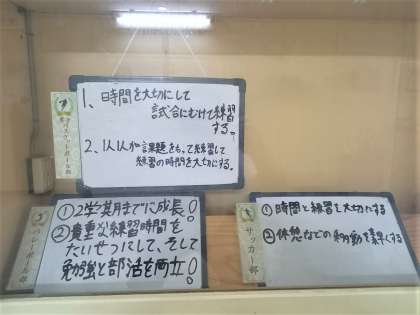 1、時間を大切にして
試合にむけて練習
する。
2、1人1人が課題をもって練習して
練習の時間を大切にする。
バスケットボール部
①2学期までに成長!
②貴重な練習時間を
たいせつにして、そして
勉強と部活を両立!
バレーボール部
①時間と練習を大切にする
②休憩などの行動を素早くする
サッカー部